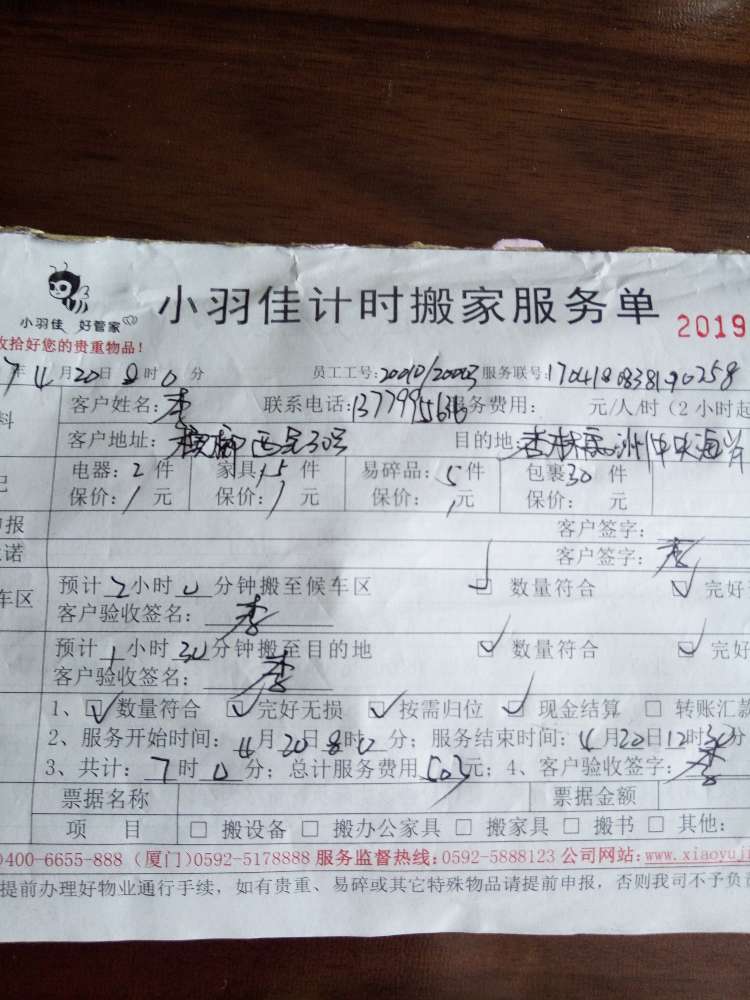 小羽佳计时搬家服务单
小羽佳 好管家
2019
收拾好您的贵重物品!
7年4月20日8时0分 员工工号: 服务联号:
客户姓名:李 联系电话: 服务费用: 元/人/时(2小时起
客户地址: 30号 目的地:
电器:2件 家具:15件 易碎品:5件 包裹30件
保价:/元 保价:/元 保价:/元 保价: 元
申报 客户签字:
诺 客户签字:李
车区 预计2小时0分钟搬至候车区 ☑ 数量符合 ☑ 完好
客户验收签名:李
预计1小时30分钟搬至目的地 ☑ 数量符合 ☑ 完好
客户验收签名:李
1、☑数量符合 ☑完好无损 ☑按需归位 ☑现金结算 □ 转账汇款
2、服务开始时间:4月20日8时0分;服务结束时间:4月20日12时30分
3、共计:7时0分;总计服务费用 元;4、客户验收签字:李
票据名称 票据金额
项 目 □ 搬设备 □ 搬办公家具 □ 搬家具 □ 搬书 □ 其他:
)400-6655-888 (厦门)0592-5178888 服务监督热线:0592-5888123 公司网站:www.xiaoyuj
提前办理好物业通行手续,如有贵重、易碎或其它特殊物品请提前申报,否则我司不予负